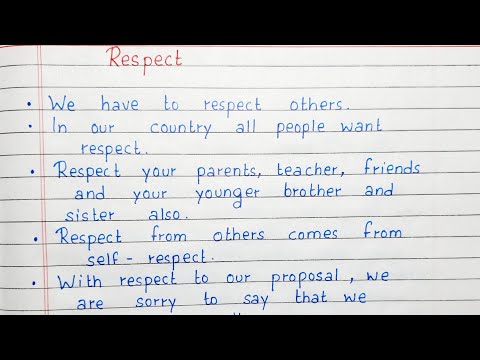 Respect
• We have to respect others.
• In our country all people want
respect.
• Respect your parents, teacher, friends
and your younger brother and
sister also.
• Respect from others comes from
self - respect.
• With respect to our proposal, we
are sorry to say that we